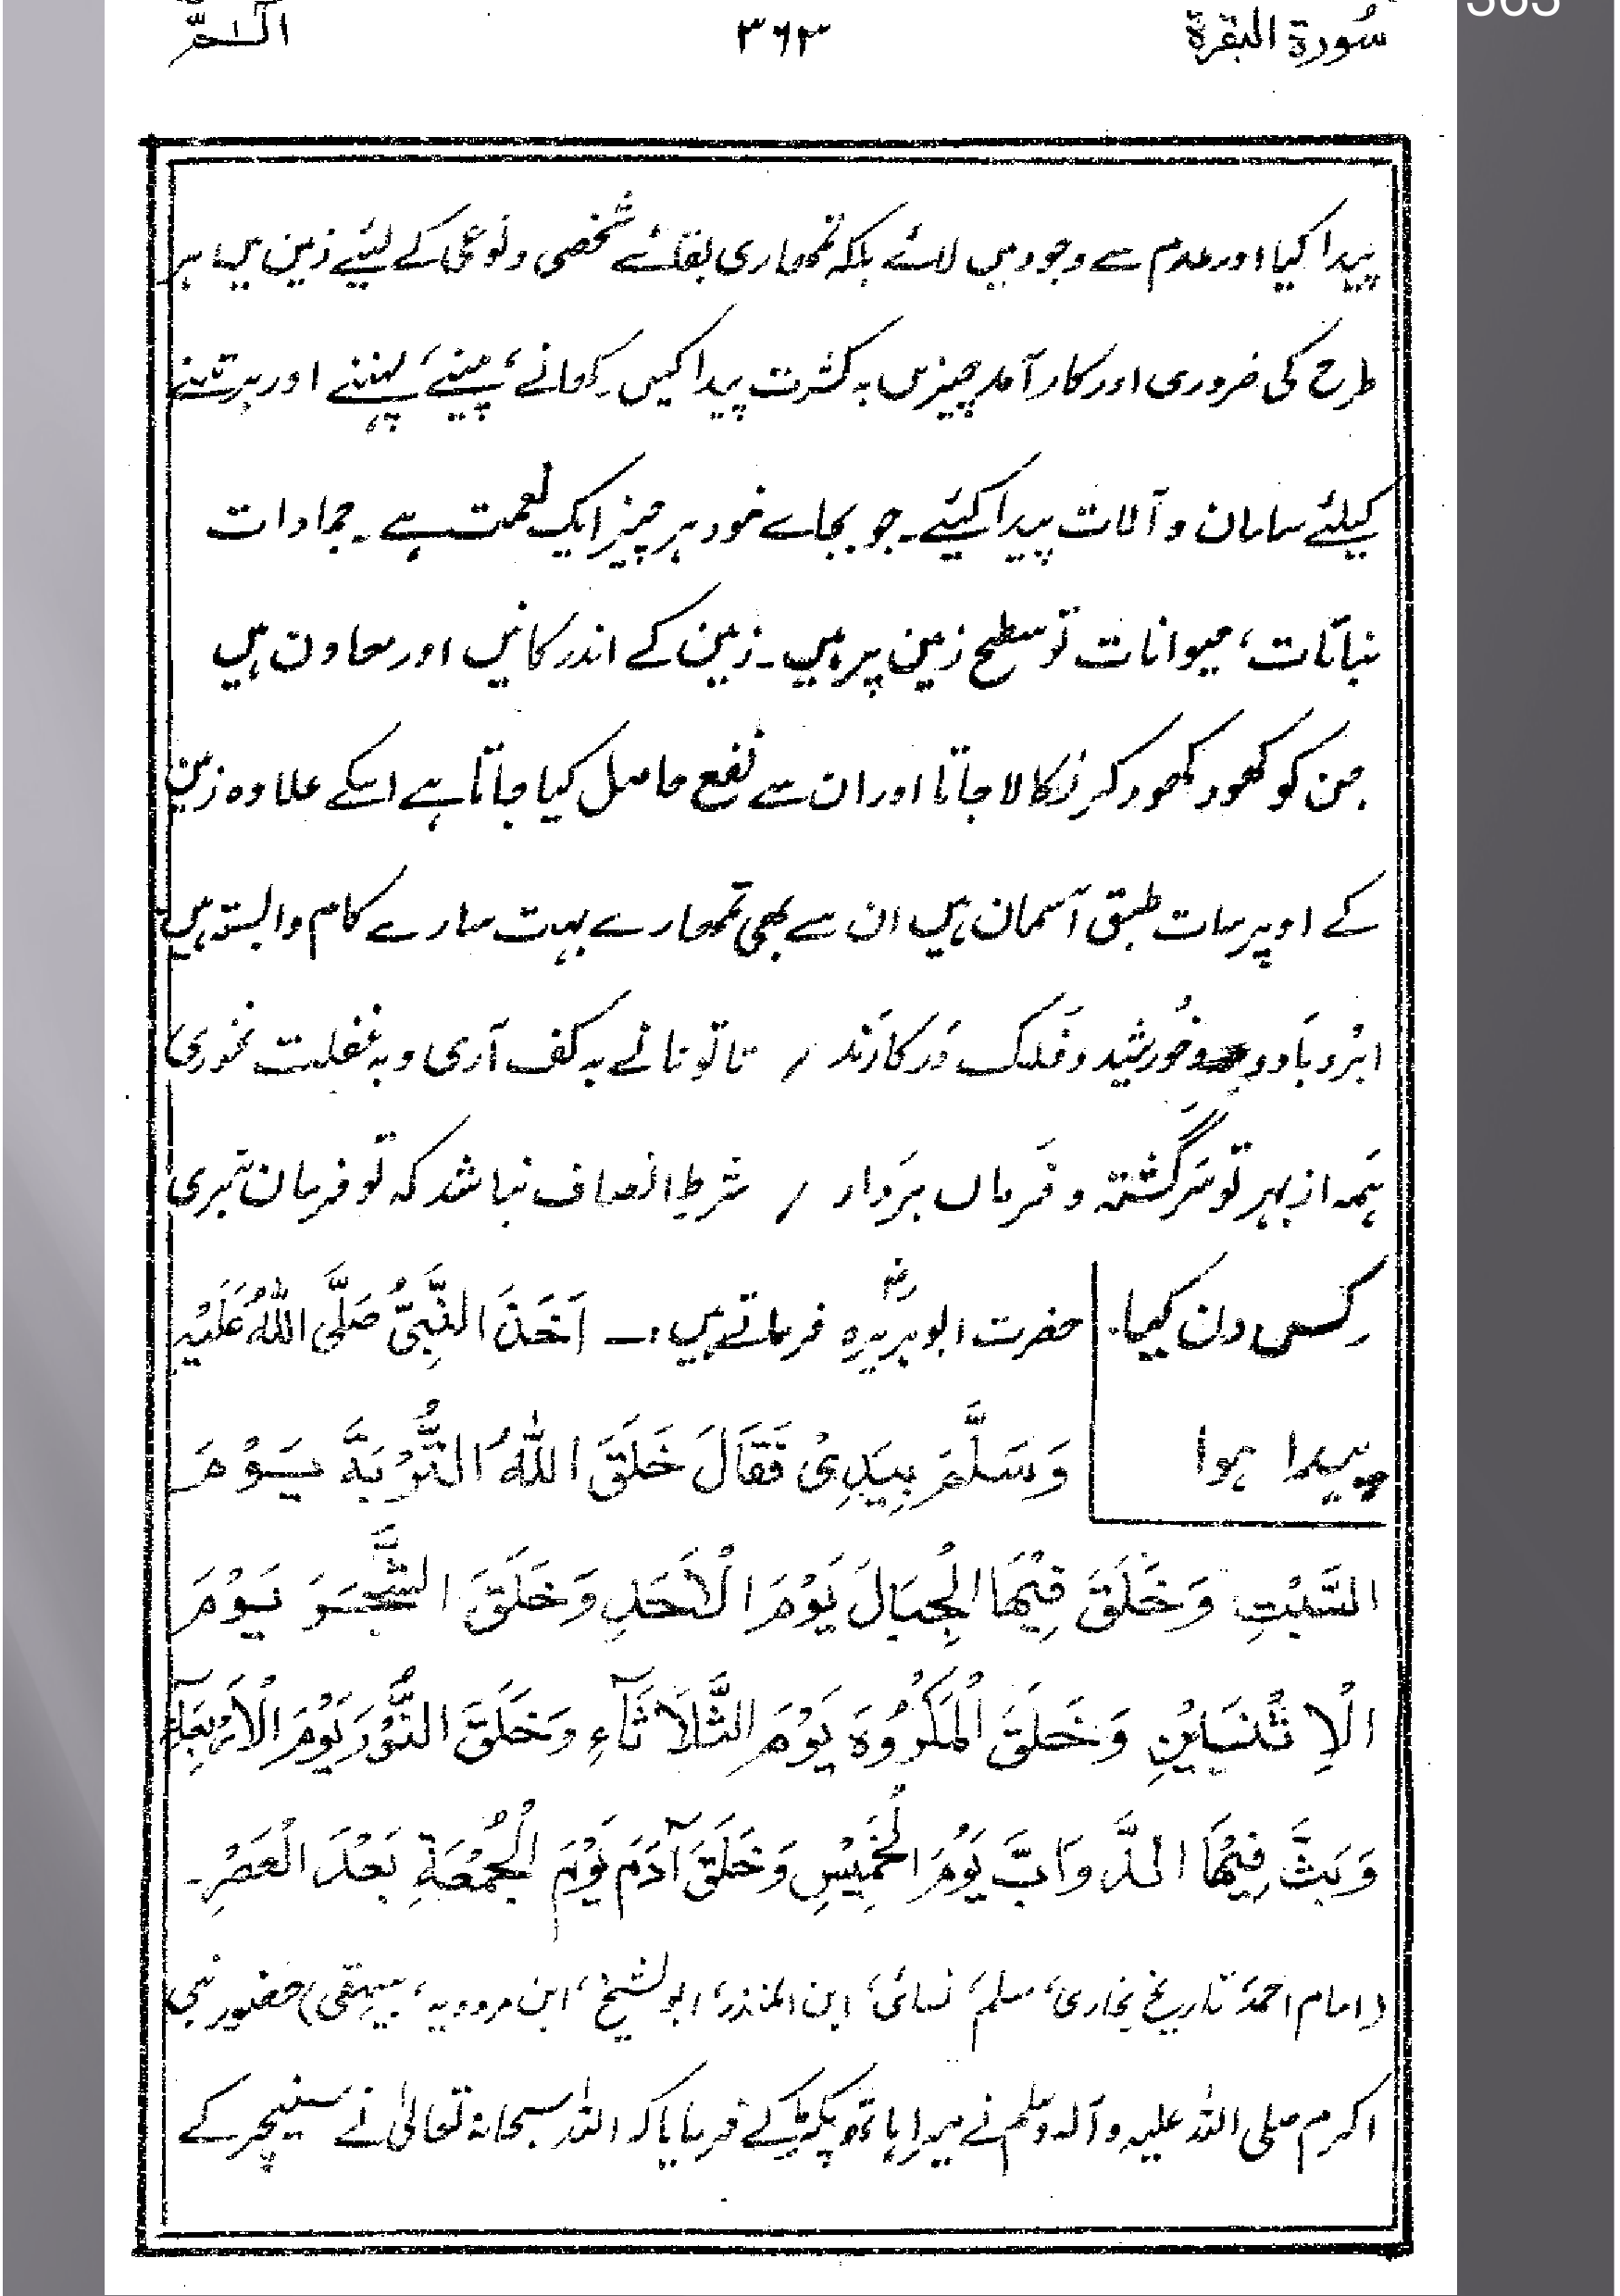 سُورة البقرة ٣٦٣ الٓـمّٓ
پیدا کیا اور عدم سے وجود میں لائے بلکہ تمھاری بقائے شخصی و نوعی کے لیئے زمین میں ہر
طرح کی ضروری اور کار آمد چیزیں بہ کثرت پیدا کیں۔ کھانے، پینے، پہننے اور برتنے
کیلئے سامان و آلات پیدا کیئے۔ جو بجاے خود ہر چیز ایک نعمت ہے۔ جمادات
نباتات، حیوانات تو سطح زمین پر ہیں۔ زمین کے اندر کانیں اور معاون ہیں
جن کو کھود کھود کر نکالا جاتا اور ان سے نفع حاصل کیا جاتا ہے اسکے علاوہ زمین
کے اوپر سات طبق آسمان ہیں ان سے بھی تمھارے بہت سارے کام وابستہ ہیں
ابْر و بَاد و وخُورشید و فَلک دَر کارَند / تا تو نانے بہ کف آری و بہ غفلت نخوری
ہَمہ از بہر تو سَرگشتہ و فَرماں بَردار / شرطِ انصاف نباشد کہ تو فرمان نبری
کس دن کیا۔ حضرت ابوہریرہؓ فرماتے ہیں :۔ اَخَذَ النَّبِیُّ صَلَّی اللّٰہُ عَلَیْہِ
پیدا ہوا وَسَلَّمَ بِیَدِیْ فَقَالَ خَلَقَ اللّٰہُ التُّرْبَۃَ یَوْمَ
السَّبْتِ وَخَلَقَ فِیْھَا الْجِبَالَ یَوْمَ الْاَحَدِ وَخَلَقَ الشَّجَرَ یَوْمَ
الْاِثْنَیْنِ وَخَلَقَ الْمَکْرُوْہَ یَوْمَ الثَّلَاثَآءِ وَخَلَقَ النُّوْرَ یَوْمَ الْاَرْبِعَآءِ
وَبَثَّ فِیْھَا الدَّوَابَّ یَوْمَ الْخَمِیْسِ وَخَلَقَ آدَمَ یَوْمَ الْجُمُعَۃِ بَعْدَ الْعَصْرِ۔
(امام احمد، تاریخ بخاری، مسلم، نسائی، ابن المنذر، ابوالشیخ، ابن مردویہ، بیہقی) حضور نبی
اکرم صلی اللہ علیہ وآلہ وسلم نے میرا ہاتھ پکڑ کے فرمایا کہ اللہ سبحانہ تعالیٰ نے سنیچر کے